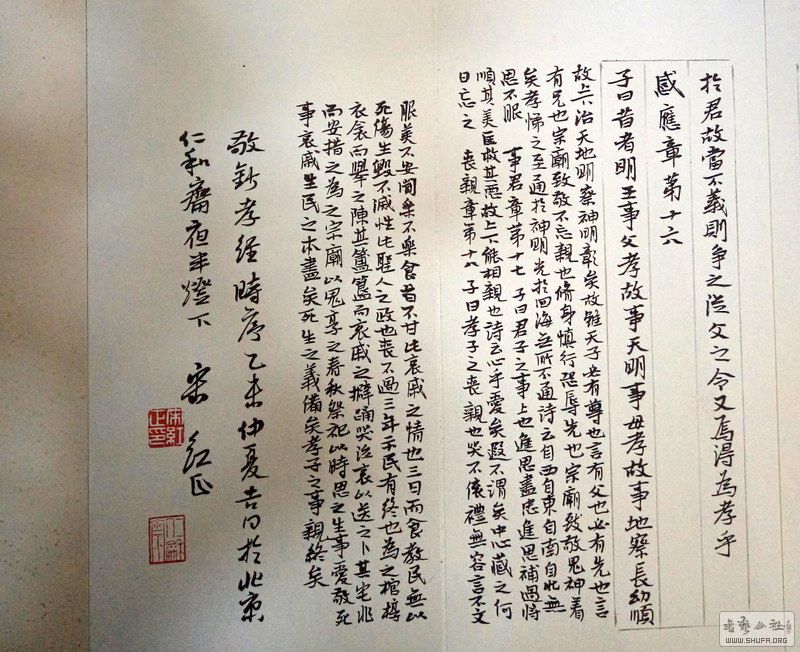 於君故當不義則争之從父之令又焉得為孝乎
感應章第十六
子曰昔者明王事父孝故事天明事母孝故事地察長幼順
故上下治天地明察神明彰矣故雖天子必有尊也言有父也必有先也言
有兄也宗廟致敬不忘親也脩身慎行恐辱先也宗廟致敬鬼神着
矣孝悌之至通於神明光於四海無所不通詩云自西自東自南自北無
思不服 事君章第十七 子曰君子之事上也進思盡忠進思補過將
順其美匡救其惡故上下能相親也詩云心乎愛矣遐不謂矣中心藏之何
日忘之 喪親章第十八 子曰孝子之喪親也哭不偯禮無容言不文
服美不安聞樂不樂食旨不甘此哀戚之情也三日而食教民無以
死傷生毀不滅性此聖人之政也喪不過三年示民有終也為之棺椁
衣衾而舉之陳其簠簋而哀戚之擗踊哭泣哀以送之卜其宅兆
而安措之為之宗廟以鬼享之春秋祭祀以時思之生事愛敬死
事哀戚生民之本盡矣死生之義備矣孝子之事親終矣
敬鈔孝經時序乙未仲夏吉日於北京
仁和齋夜半燈下 宋紅正
宋紅正印
書藝公社
WWW.SHUFA.ORG